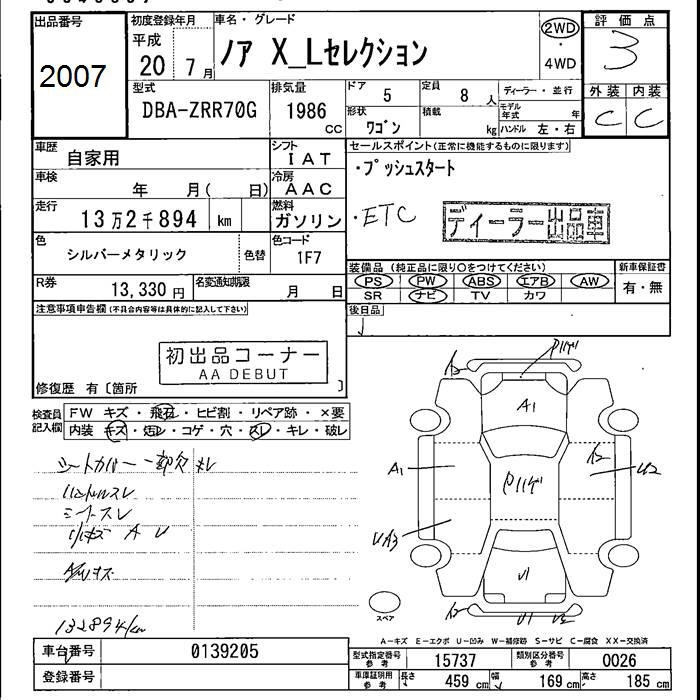 出品番号
2007
初度登録年月
平成
20 7月
車名・グレード
ノア X_Lセレクション
2WD
・
4WD
評価点
3
外装 内装
C C
型式
DBA-ZRR70G
排気量
1986
CC
ドア
5
定員
8 人
ディーラー・並行
形状
ワゴン
積載
kg
モデル
年式 年
ハンドル 左・右
車歴
自家用
シフト
IAT
車検
年 月( 日)
冷房
AAC
走行
13万2千894 km
燃料
ガソリン
色
シルバーメタリック
色替
色コード
1F7
R券
13,330 円
名変通知期限
月 日
セールスポイント(正常に機能するものに限ります)
・プッシュスタート
・ETC
ディーラー出品車
装備品 (純正品に限り〇をつけてください)
PS PW ABS エアB AW
SR ナビ TV カワ
新車保証書
有・無
後日品
注意事項申告欄(不具合内容等は具体的に記入して下さい)
初出品コーナー
AA DEBUT
修復歴 有〔箇所 〕
検査員
記入欄
FW キズ・飛石・ヒビ割・リペア跡・×要
内装 キズ・汚レ・コゲ・穴・スレ・キレ・破レ
シートカバー一部欠
ハンドルスレ
シートスレ
132894km
A2
A1
A1
A2
U2
UA3
U1
A2
U1
スペア
A-キズ E-エクボ U-凹み W-補修跡 S-サビ C-腐食 XX-交換済
車台番号
0139205
登録番号
型式指定番号
参考
15737
類別区分番号
参考
0026
車庫証明用
参考
長さ
459 cm
幅
169 cm
高さ
185 cm